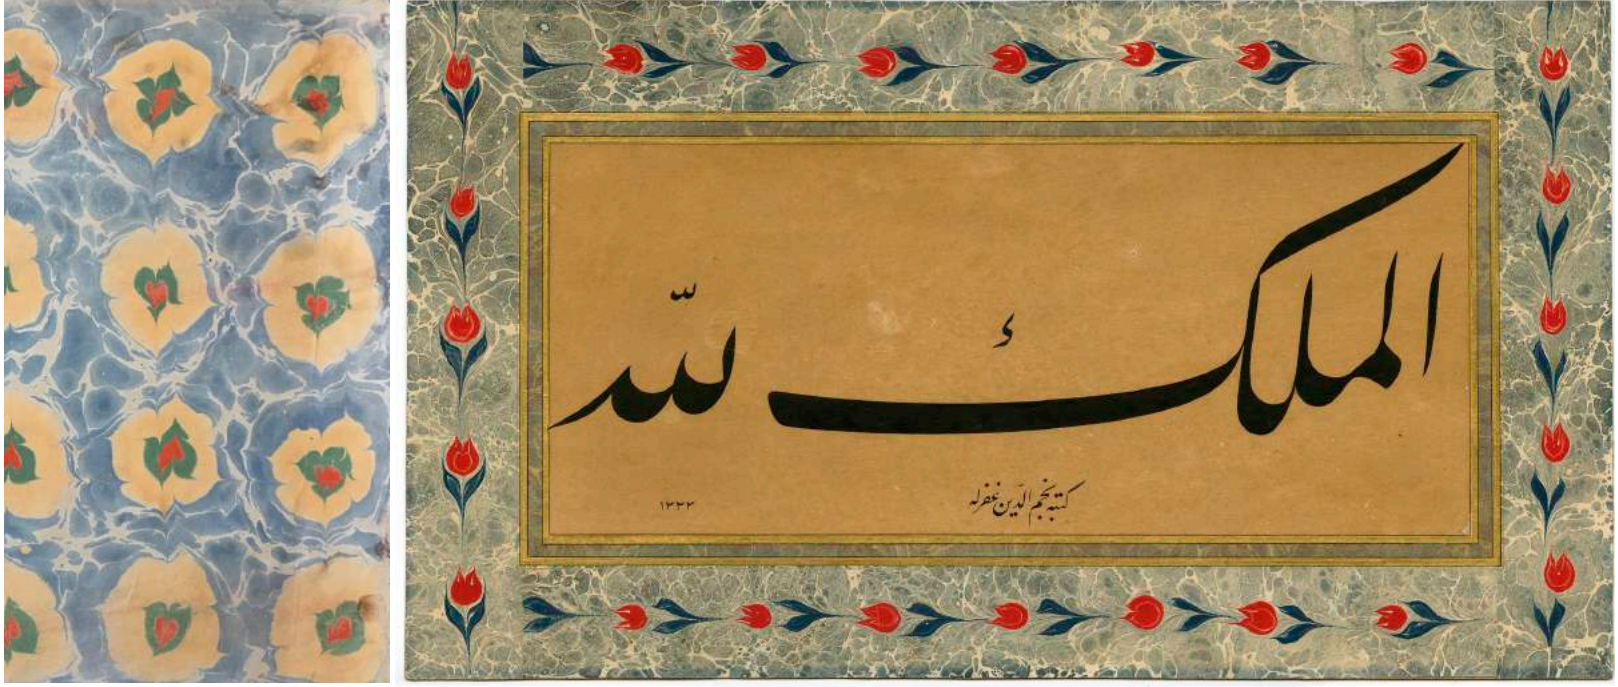 الملك لله
كتبه نجم الدّين غفرله